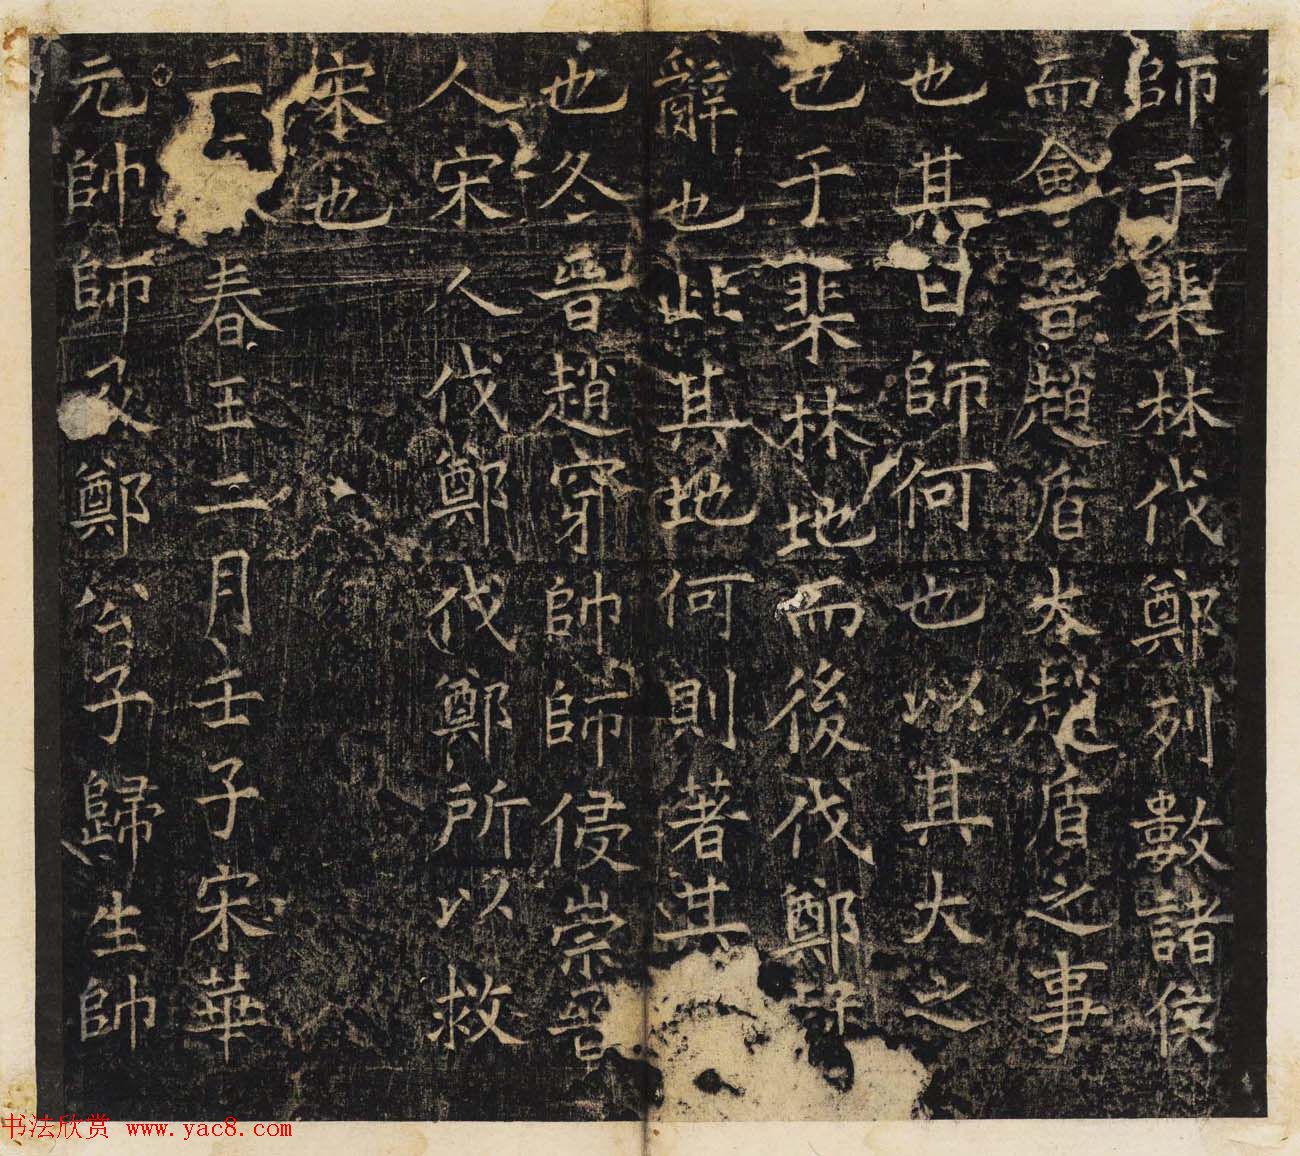 師于棐林伐鄭列數諸侯
而會晉趙盾大趙盾之事
也其曰師何也以其大之
也于棐林地而後伐鄭
辭也此其地何則著其
也冬晉趙穿帥師侵崇晉
人宋人伐鄭伐鄭所以救
宋也
二春王二月壬子宋華
元帥師及鄭公子歸生帥
书法欣赏 www.yac8.com